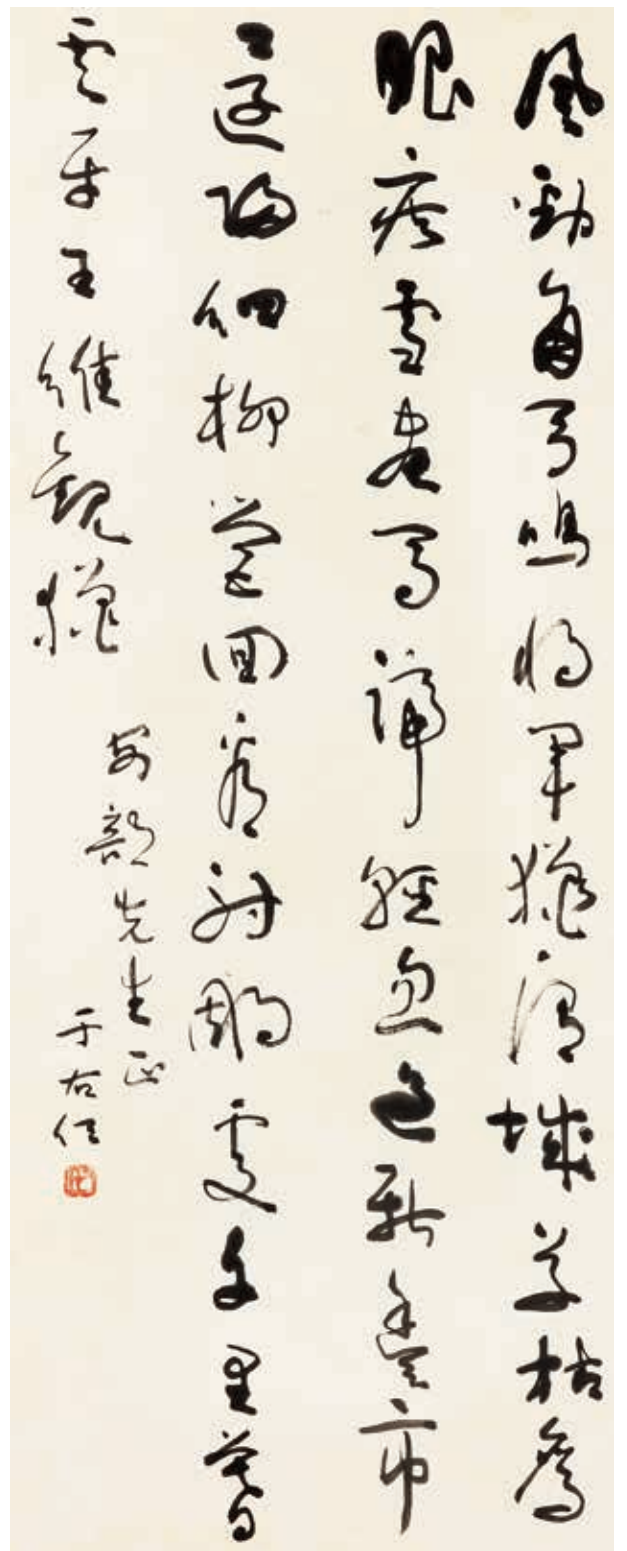 風勁角弓鳴將軍獵渭城草枯鷹
眼疾雪盡馬蹄輕忽過新豐市
還歸細柳營回看射鵰處千里暮
雲平王維觀獵
安部先生正
于右任